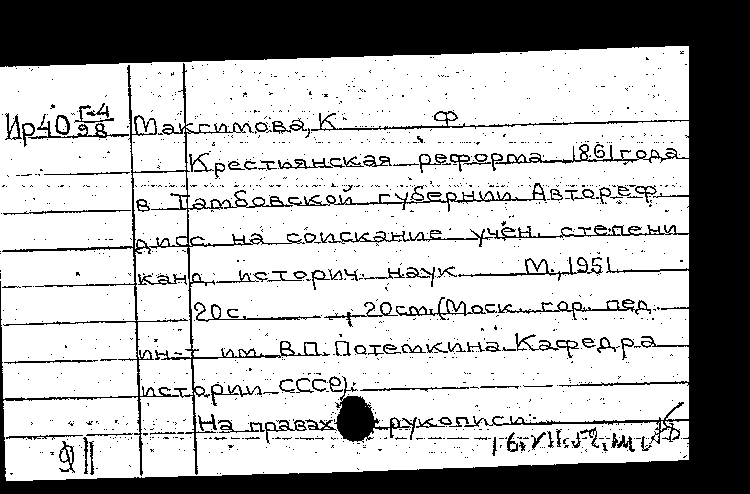 Ир40 Г-4/98 Максимова, К Ф.
Крестиянская реформа 1861 года
в Тамбовской губернии. Автореф.
дисс. на соискание учен. степени
канд. историч. наук М., 1951
20с. , 20см. (Моск. гор. пед.
ин-т им. В.П. Потемкина. Кафедра
истории СССР).
На правах рукописи.